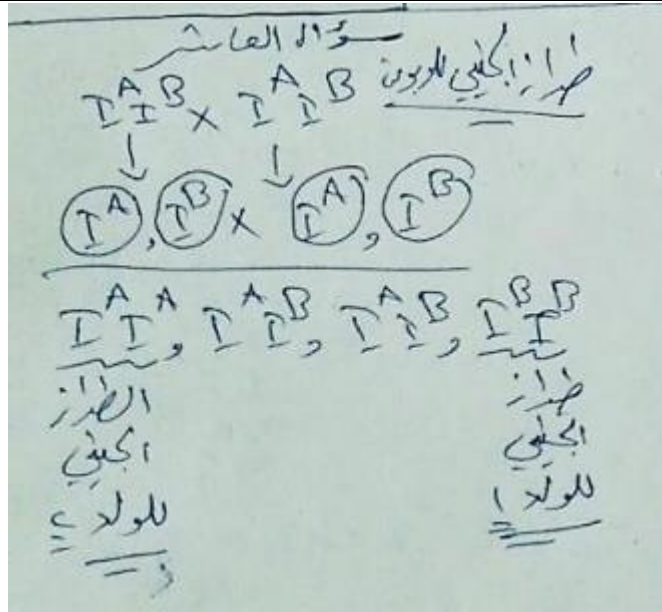 سؤال العاشر
طراز الجيني للابوين
I^A I^B × I^A I^B
↓ ↓
I^A , I^B × I^A , I^B
I^A I^A , I^A I^B , I^A I^B , I^B I^B
الطراز
الجيني
للولد ٢
طراز
الجيني
للولد ١